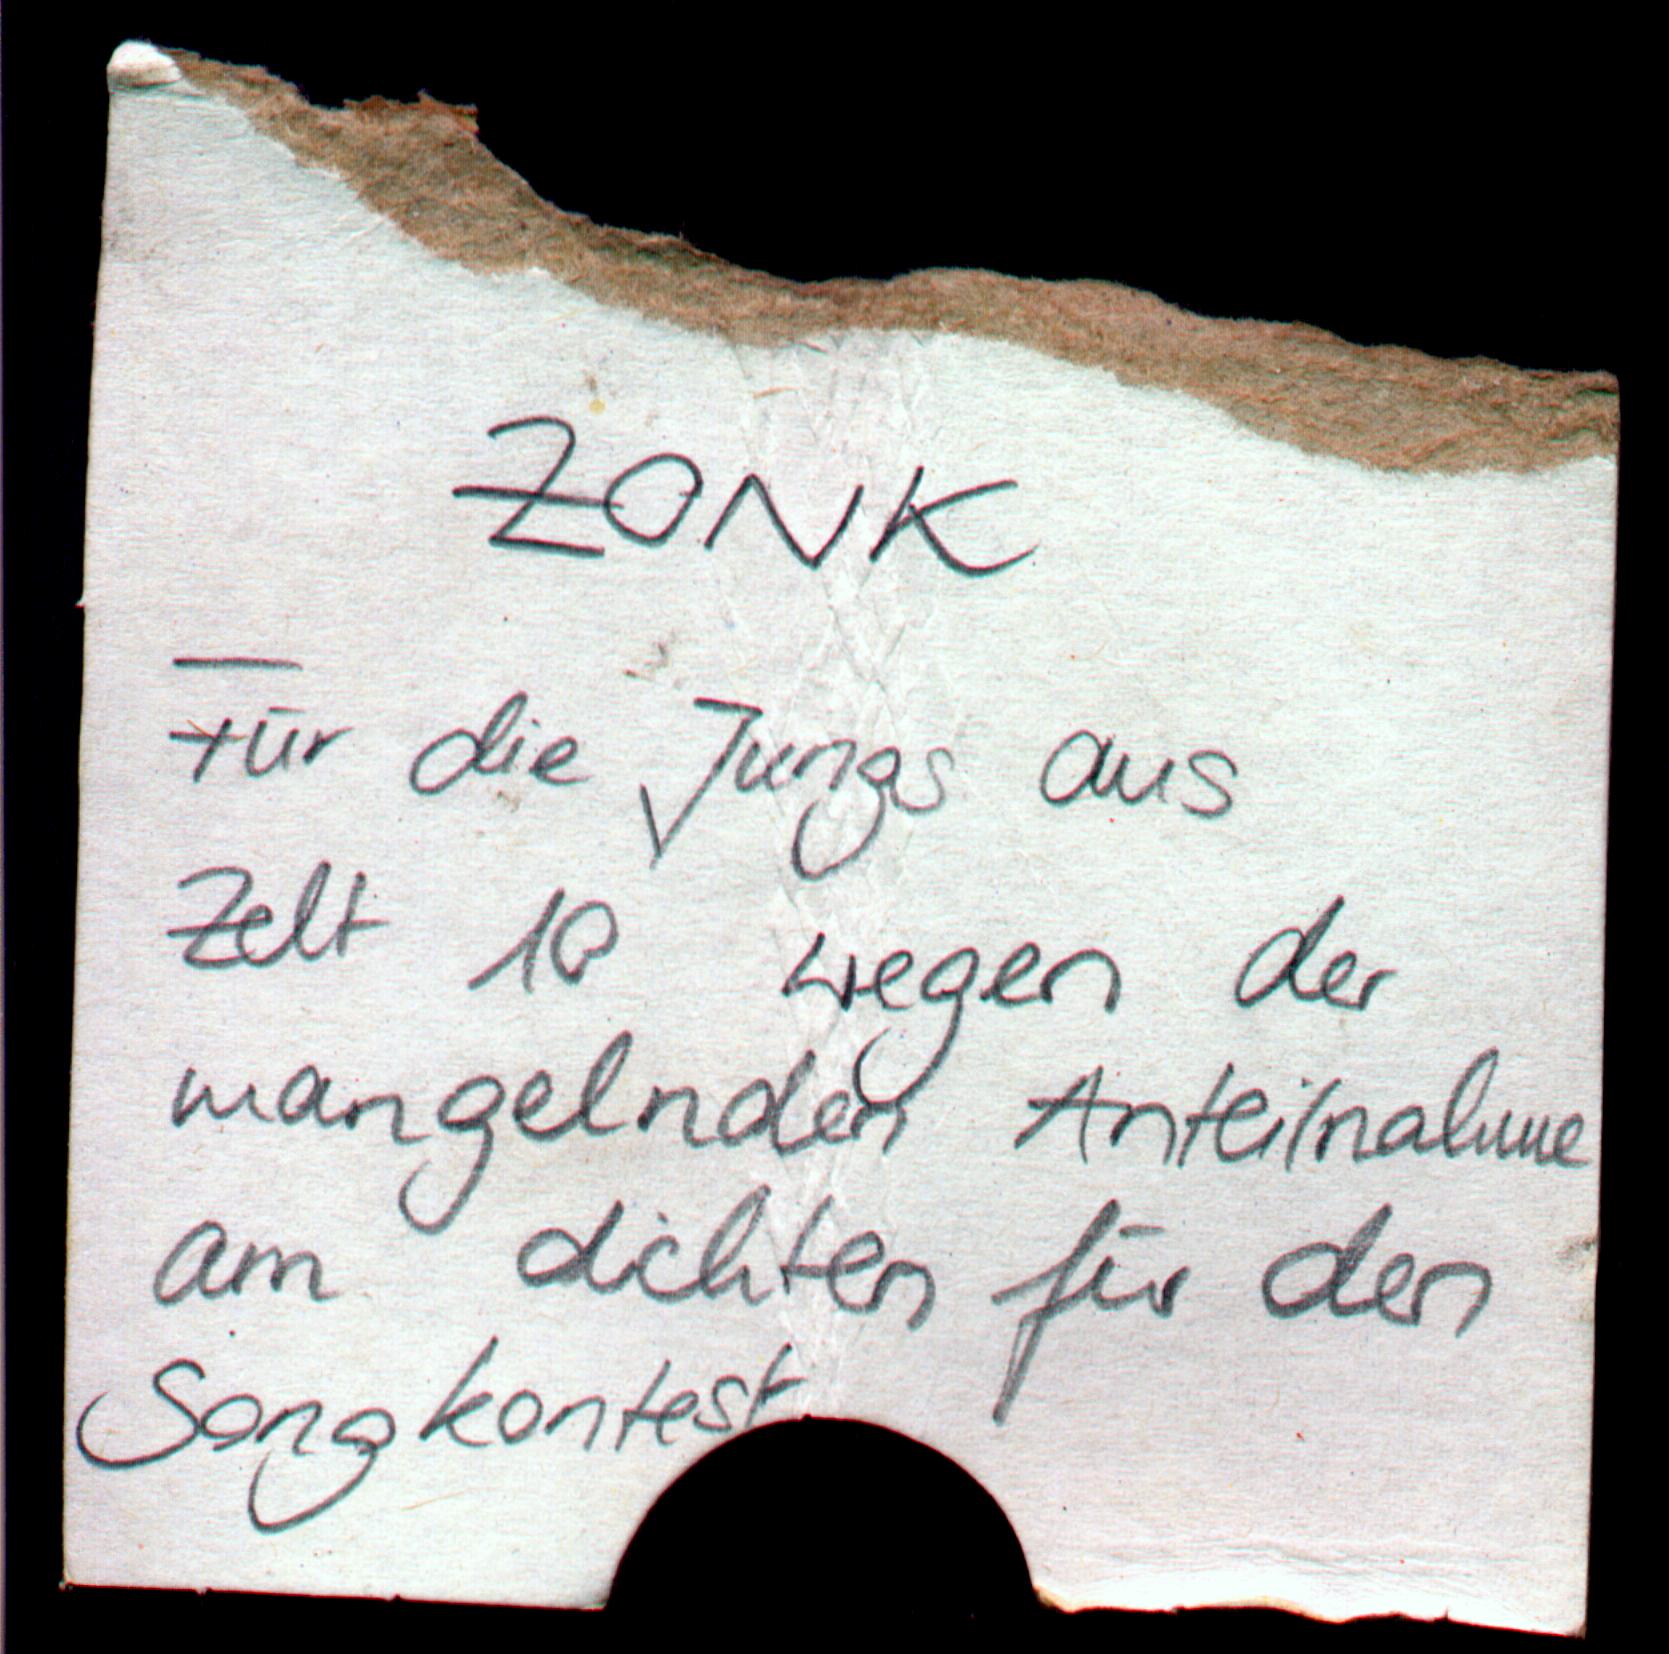 ZONK
Für die Jungs aus
Zelt 10 wegen der
mangelnden Anteilnahme
am dichten für den
Songkontest